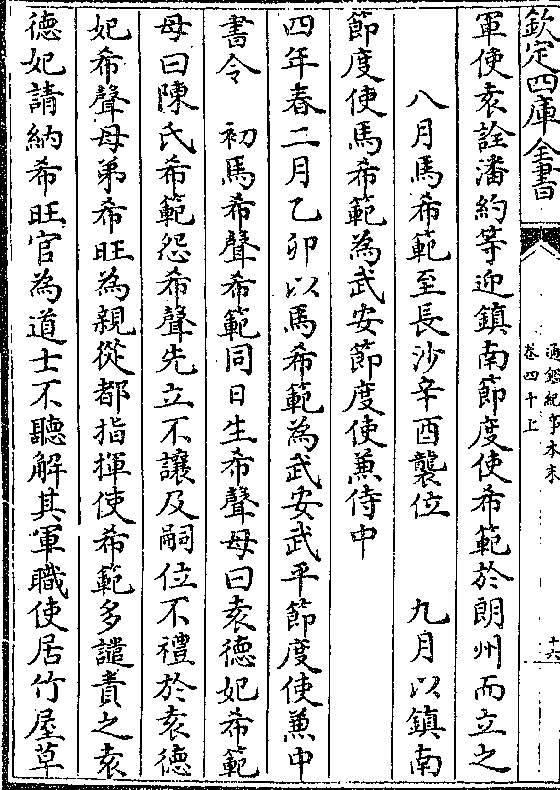 欽定四庫全書
通鑑紀事本末
卷四十上
十六
軍使袁詮潘約等迎鎮南節度使希範於朗州而立之
八月馬希範至長沙辛酉襲位　九月以鎮南
節度使馬希範為武安節度使兼侍中
四年春二月乙卯以馬希範為武安武平節度使兼中
書令　初馬希聲希範同日生希聲母曰袁德妃希範
母曰陳氏希範怨希聲先立不讓及嗣位不禮於袁德
妃希聲母弟希旺為親從都指揮使希範多譴責之袁
德妃請納希旺官為道士不聽解其軍職使居竹屋草